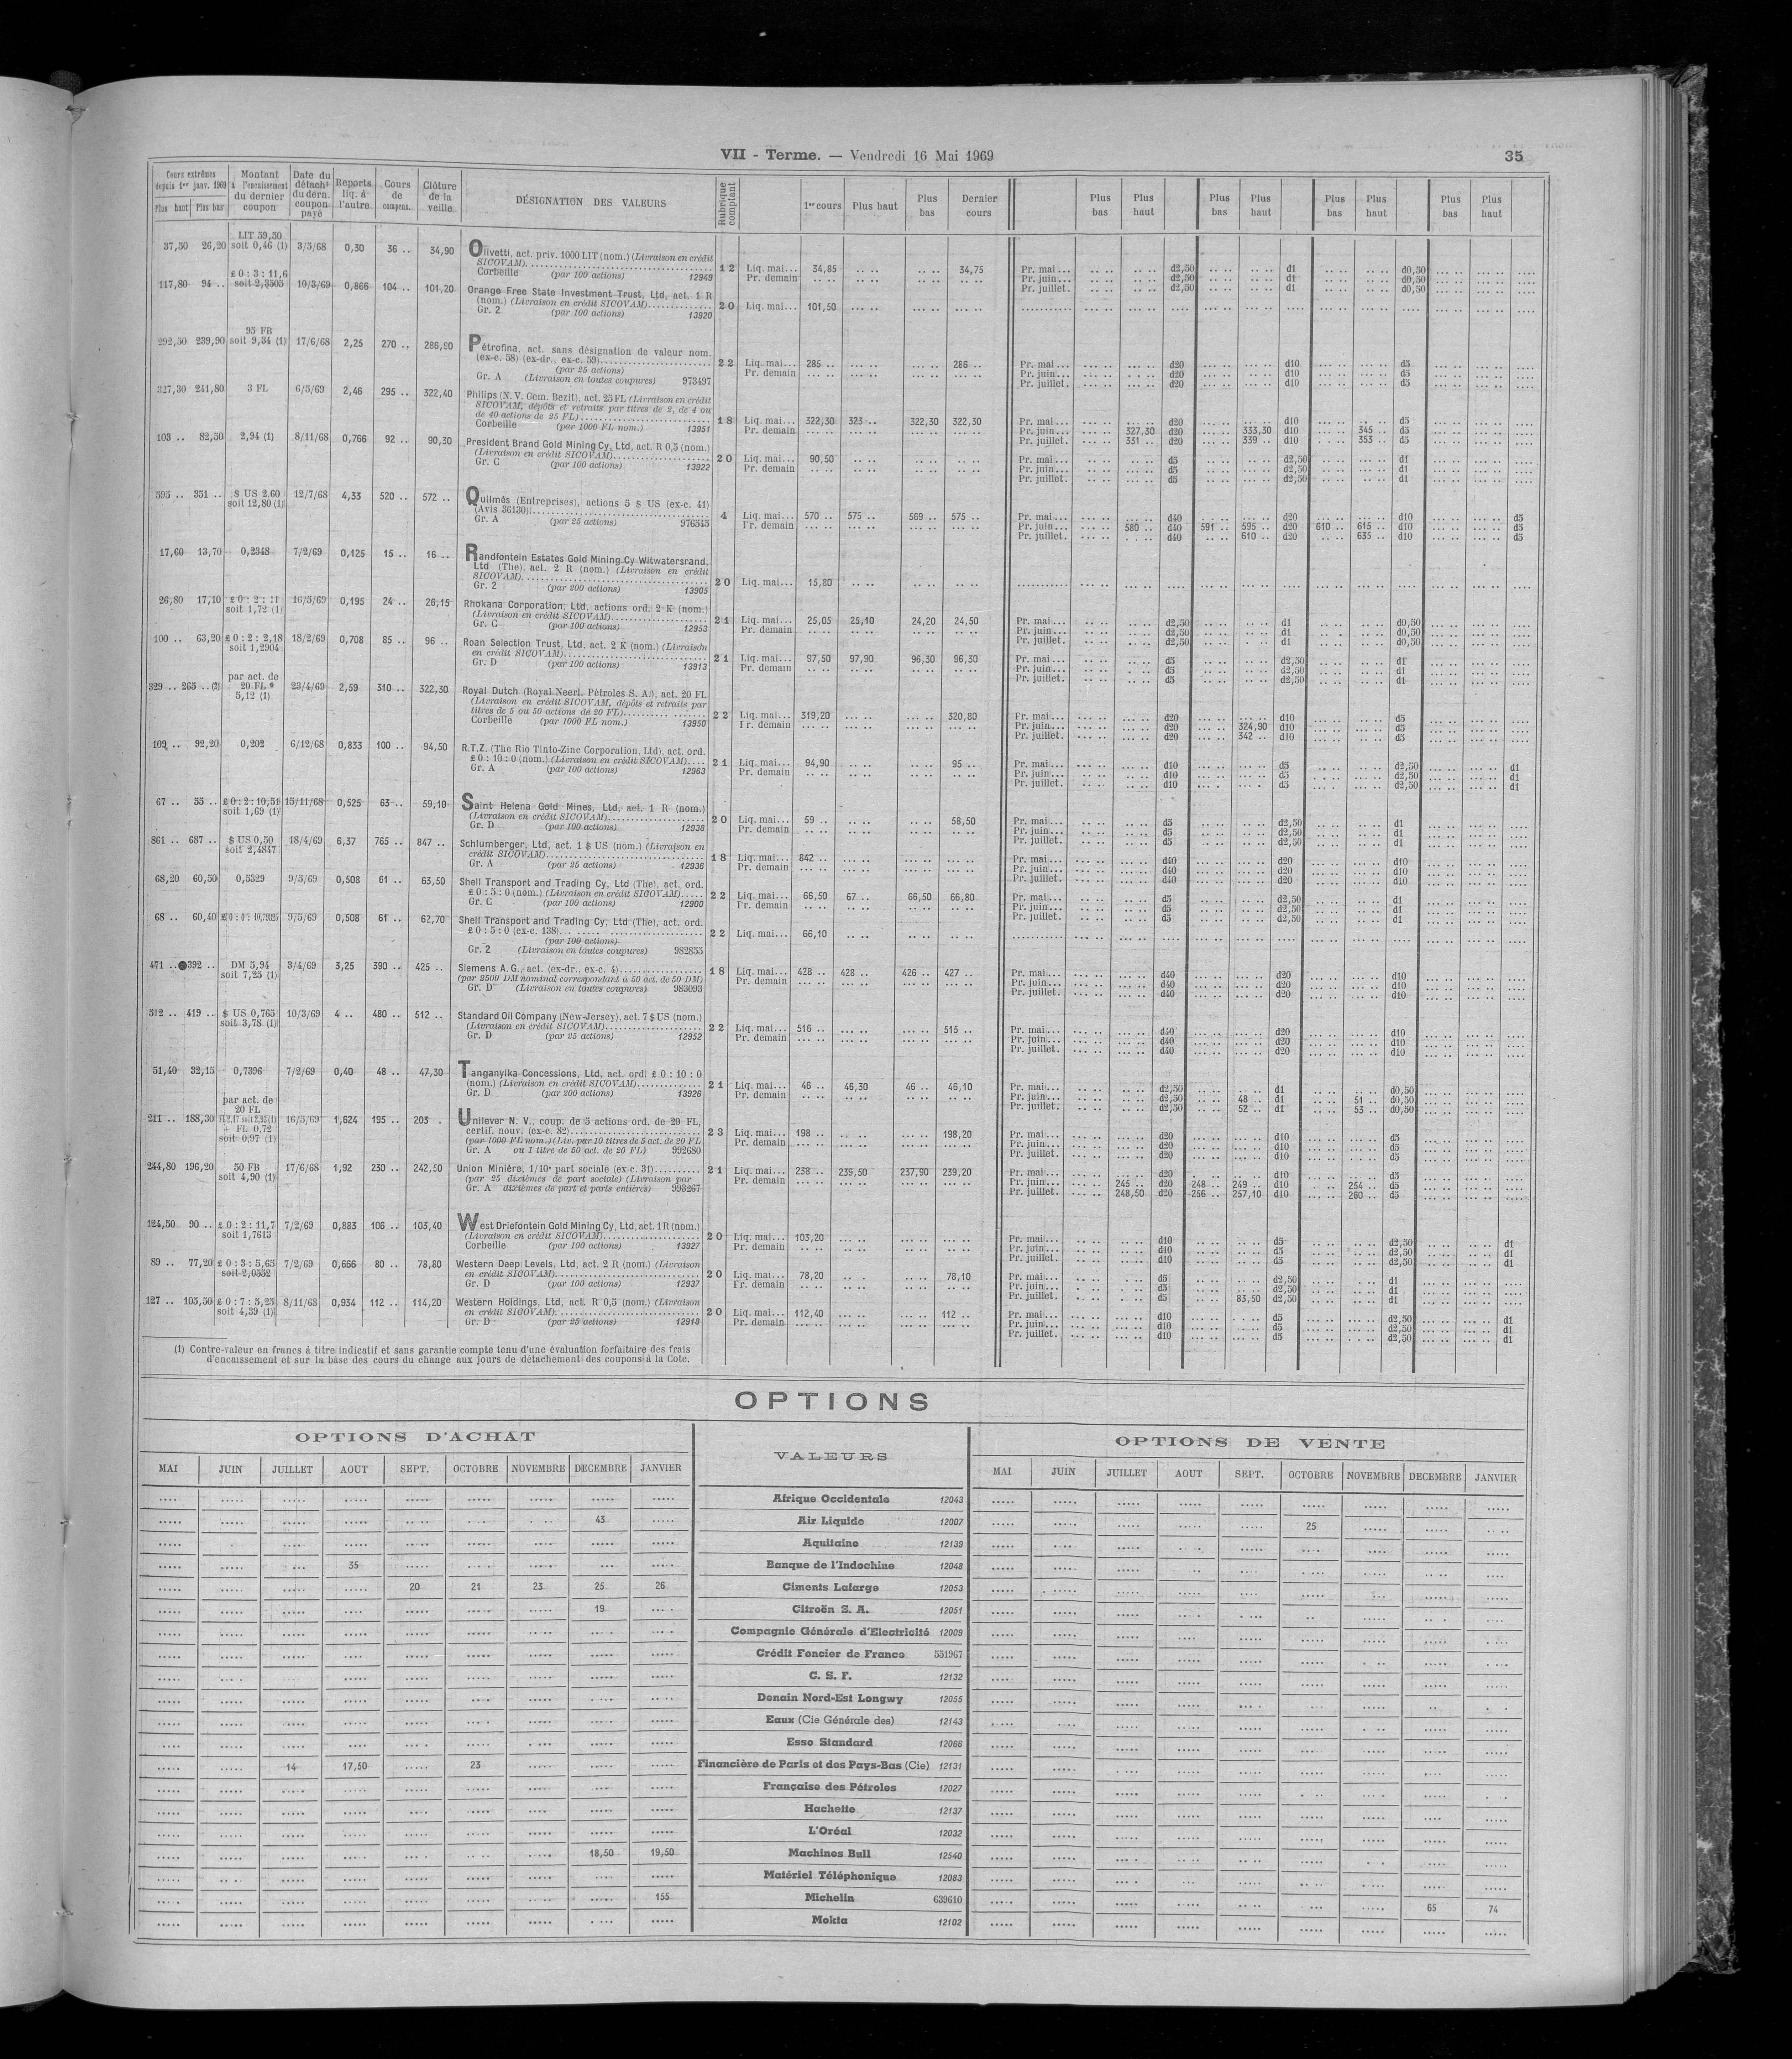 VII - Terme. — Vendredi 16 Mai 1969
35
Cours extrêmes depuis 1er janv. 1969 Plus haut Plus bas
Montant à l'encaissement du dernier coupon
Date du détacht du dern. coupon payé
Reports liq. à l'autre
Cours de compens.
Clôture de la veille
DÉSIGNATION DES VALEURS
Rubrique comptant
1er cours Plus haut Plus bas Dernier cours
Plus bas Plus haut Plus bas Plus haut Plus bas Plus haut Plus bas Plus haut
37,50 26,20 LIT 59,50 soit 0,46 (1) 3/5/68 0,30 36 .. 34,90
Olivetti, act. priv. 1000 LIT (nom.) (Livraison en crédit
SICOVAM)
Corbeille (par 100 actions) 12949
12 Liq. mai... 34,85 34,75 Pr. mai... d2,50 d1 d0,50
Pr. demain Pr. juin... d2,50 d1 d0,50
Pr. juillet. d2,50 d1 d0,50
117,80 94 .. £ 0 : 3 : 11,6 soit 2,3505 10/3/69 0,866 104 .. 101,20
Orange Free State Investment Trust, Ltd, act. 1 R
(nom.) (Livraison en crédit SICOVAM)
Gr. 2 (par 100 actions) 13920
20 Liq. mai... 101,50
292,50 239,90 95 FB soit 9,34 (1) 17/6/68 2,25 270 .. 286,90
Pétrofina, act. sans désignation de valeur nom.
(ex-c. 58) (ex-dr., ex-c. 59)
(par 25 actions)
Gr. A (Livraison en toutes coupures) 973497
22 Liq. mai... 285 .. 286 .. Pr. mai... d20 d10 d5
Pr. demain Pr. juin... d20 d10 d5
Pr. juillet. d20 d10 d5
327,30 241,80 3 FL 6/5/69 2,46 295 .. 322,40
Philips (N. V. Gem. Bezit), act. 25 FL (Livraison en crédit
SICOVAM, dépôts et retraits par titres de 2, de 4 ou
de 40 actions de 25 FL)
Corbeille (par 1000 FL nom.) 13951
18 Liq. mai... 322,30 323 .. 322,30 322,30 Pr. mai... d20 d10 d5
Pr. demain Pr. juin... 327,30 d20 333,30 d10 345 .. d5
Pr. juillet. 331 .. d20 339 .. d10 353 .. d5
103 .. 82,50 2,94 (1) 8/11/68 0,766 92 .. 90,30
President Brand Gold Mining Cy, Ltd, act. R 0,5 (nom.)
(Livraison en crédit SICOVAM)
Gr. C (par 100 actions) 13922
20 Liq. mai... 90,50 Pr. mai... d5 d2,50 d1
Pr. demain Pr. juin... d5 d2,50 d1
Pr. juillet. d5 d2,50 d1
595 .. 351 .. $ US 2,60 soit 12,80 (1) 12/7/68 4,33 520 .. 572 ..
Quilmès (Entreprises), actions 5 $ US (ex-c. 41)
(Avis 36130)
Gr. A (par 25 actions) 976545
4 Liq. mai... 570 .. 575 .. 569 .. 575 .. Pr. mai... d40 d20 d10 d5
Pr. demain Pr. juin... 580 .. d40 591 .. 595 .. d20 610 .. 615 .. d10 d5
Pr. juillet. d40 610 .. d20 635 .. d10 d5
17,60 13,70 0,2348 7/2/69 0,125 15 .. 16 ..
Randfontein Estates Gold Mining Cy Witwatersrand,
Ltd (The), act. 2 R (nom.) (Livraison en crédit
SICOVAM)
Gr. 2 (par 200 actions) 13905
20 Liq. mai... 15,80
26,80 17,10 £ 0 : 2 : 11 soit 1,72 (1) 16/5/69 0,195 24 .. 26,15
Rhokana Corporation, Ltd, actions ord. 2 K (nom.)
(Livraison en crédit SICOVAM)
Gr. C (par 100 actions) 12953
21 Liq. mai... 25,05 25,10 24,20 24,50 Pr. mai... d2,50 d1 d0,50
Pr. demain Pr. juin... d2,50 d1 d0,50
Pr. juillet. d2,50 d1 d0,50
100 .. 63,20 £ 0 : 2 : 2,18 soit 1,2904 18/2/69 0,708 85 .. 96 ..
Roan Selection Trust, Ltd, act. 2 K (nom.) (Livraison
en crédit SICOVAM)
Gr. D (par 100 actions) 13913
21 Liq. mai... 97,50 97,90 96,30 96,30 Pr. mai... d5 d2,50 d1
Pr. demain Pr. juin... d5 d2,50 d1
Pr. juillet. d5 d2,50 d1
329 .. 265 .. par act. de 20 FL 5,12 (1) 23/4/69 2,59 310 .. 322,30
Royal Dutch (Royal Neerl. Pétroles S. A.), act. 20 FL
(Livraison en crédit SICOVAM, dépôts et retraits par
titres de 5 ou 50 actions de 20 FL)
Corbeille (par 1000 FL nom.) 13950
22 Liq. mai... 319,20 320,80 Pr. mai... d20 d10 d5
Pr. demain Pr. juin... d20 324,90 d10 d5
Pr. juillet. d20 342 .. d10 d5
109 .. 92,20 0,202 6/12/68 0,833 100 .. 94,50
R.T.Z. (The Rio Tinto-Zinc Corporation, Ltd), act. ord.
£ 0 : 10 : 0 (nom.) (Livraison en crédit SICOVAM)
Gr. A (par 100 actions) 12963
21 Liq. mai... 94,90 95 .. Pr. mai... d10 d5 d2,50 d1
Pr. demain Pr. juin... d10 d5 d2,50 d1
Pr. juillet. d10 d5 d2,50 d1
67 .. 55 .. £ 0 : 2 : 10,51 soit 1,69 (1) 15/11/68 0,525 63 .. 59,10
Saint Helena Gold Mines, Ltd, act. 1 R (nom.)
(Livraison en crédit SICOVAM)
Gr. D (par 100 actions) 12938
20 Liq. mai... 59 .. 58,50 Pr. mai... d5 d2,50 d1
Pr. demain Pr. juin... d5 d2,50 d1
Pr. juillet. d5 d2,50 d1
861 .. 687 .. $ US 0,50 soit 2,4847 18/4/69 6,37 765 .. 847 ..
Schlumberger, Ltd, act. 1 $ US (nom.) (Livraison en
crédit SICOVAM)
Gr. A (par 25 actions) 12936
18 Liq. mai... 842 .. Pr. mai... d40 d20 d10
Pr. demain Pr. juin... d40 d20 d10
Pr. juillet. d40 d20 d10
68,20 60,50 0,5529 9/5/69 0,508 61 .. 63,50
Shell Transport and Trading Cy, Ltd (The), act. ord.
£ 0 : 5 : 0 (nom.) (Livraison en crédit SICOVAM)
Gr. C (par 100 actions) 12900
22 Liq. mai... 66,50 67 .. 66,50 66,80 Pr. mai... d5 d2,50 d1
Pr. demain Pr. juin... d5 d2,50 d1
Pr. juillet. d5 d2,50 d1
68 .. 60,40 £ 0 : 0 : 10,73025 9/5/69 0,508 61 .. 62,70
Shell Transport and Trading Cy, Ltd (The), act. ord.
£ 0 : 5 : 0 (ex-c. 138)
(par 100 actions)
Gr. 2 (Livraison en toutes coupures) 982855
22 Liq. mai... 66,10
471 .. 392 .. DM 5,94 soit 7,25 (1) 3/4/69 3,25 390 .. 425 ..
Siemens A. G., act. (ex-dr., ex-c. 4)
(par 2500 DM nominal correspondant à 50 act. de 50 DM)
Gr. D (Livraison en toutes coupures) 983093
18 Liq. mai... 428 .. 428 .. 426 .. 427 .. Pr. mai... d40 d20 d10
Pr. demain Pr. juin... d40 d20 d10
Pr. juillet. d40 d20 d10
512 .. 419 .. $ US 0,765 soit 3,78 (1) 10/3/69 4 .. 480 .. 512 ..
Standard Oil Company (New-Jersey), act. 7 $ US (nom.)
(Livraison en crédit SICOVAM)
Gr. D (par 25 actions) 12952
22 Liq. mai... 516 .. 515 .. Pr. mai... d40 d20 d10
Pr. demain Pr. juin... d40 d20 d10
Pr. juillet. d40 d20 d10
51,40 32,15 0,7396 7/2/69 0,40 48 .. 47,30
Tanganyika Concessions, Ltd, act. ord. £ 0 : 10 : 0
(nom.) (Livraison en crédit SICOVAM)
Gr. D (par 200 actions) 13926
21 Liq. mai... 46 .. 46,30 46 .. 46,10 Pr. mai... d2,50 d1 d0,50
Pr. demain Pr. juin... d2,50 48 .. d1 51 .. d0,50
Pr. juillet. d2,50 52 .. d1 53 .. d0,50
211 .. 188,30 par act. de 20 FL + FL 0,72 soit 0,97 (1) 16/5/69 1,624 195 .. 203 .
Unilever N. V., coup. de 5 actions ord. de 20 FL,
certif. nouv. (ex-c. 82)
(par 1000 FL nom.) (Liv. par 10 titres de 5 act. de 20 FL
Gr. A ou 1 titre de 50 act. de 20 FL) 992680
23 Liq. mai... 198 .. 198,20 Pr. mai... d20 d10 d5
Pr. demain Pr. juin... d20 d10 d5
Pr. juillet. d20 d10 d5
244,80 196,20 50 FB soit 4,90 (1) 17/6/68 1,92 230 .. 242,50
Union Minière, 1/10e part sociale (ex-c. 31)
(par 25 dixièmes de part sociale) (Livraison par
Gr. A dixièmes de part et parts entières) 993267
21 Liq. mai... 238 .. 239,50 237,90 239,20 Pr. mai... d20 d10 d5
Pr. demain Pr. juin... 245 .. d20 248 .. 249 .. d10 254 .. d5
Pr. juillet. 248,50 d20 256 .. 257,10 d10 260 .. d5
124,50 90 .. £ 0 : 2 : 11,7 soit 1,7613 7/2/69 0,883 106 .. 103,40
West Driefontein Gold Mining Cy, Ltd, act. 1 R (nom.)
(Livraison en crédit SICOVAM)
Corbeille (par 100 actions) 13927
20 Liq. mai... 103,20 Pr. mai... d10 d5 d2,50 d1
Pr. demain Pr. juin... d10 d5 d2,50 d1
Pr. juillet. d10 d5 d2,50 d1
89 .. 77,20 £ 0 : 3 : 5,65 soit 2,0552 7/2/69 0,666 80 .. 78,80
Western Deep Levels, Ltd, act. 2 R (nom.) (Livraison
en crédit SICOVAM)
Gr. D (par 100 actions) 12937
20 Liq. mai... 78,20 78,10 Pr. mai... d5 d2,50 d1
Pr. demain Pr. juin... d5 d2,50 d1
Pr. juillet. d5 83,50 d2,50 d1
127 .. 105,50 £ 0 : 7 : 5,25 soit 4,39 (1) 8/11/68 0,934 112 .. 114,20
Western Holdings, Ltd, act. R 0,5 (nom.) (Livraison
en crédit SICOVAM)
Gr. D (par 25 actions) 12918
20 Liq. mai... 112,40 112 .. Pr. mai... d10 d5 d2,50 d1
Pr. demain Pr. juin... d10 d5 d2,50 d1
Pr. juillet. d10 d5 d2,50 d1
(1) Contre-valeur en francs à titre indicatif et sans garantie compte tenu d'une évaluation forfaitaire des frais
d'encaissement et sur la base des cours du change aux jours de détachement des coupons à la Cote.
OPTIONS
OPTIONS D'ACHAT
VALEURS
OPTIONS DE VENTE
MAI JUIN JUILLET AOUT SEPT. OCTOBRE NOVEMBRE DECEMBRE JANVIER
MAI JUIN JUILLET AOUT SEPT. OCTOBRE NOVEMBRE DECEMBRE JANVIER
Afrique Occidentale 12043
43 Air Liquide 12007 25
Aquitaine 12139
35 Banque de l'Indochine 12048
20 21 23 25 26 Ciments Lafarge 12053
19 Citroën S. A. 12051
Compagnie Générale d'Electricité 12009
Crédit Foncier de France 551967
C. S. F. 12132
Denain Nord-Est Longwy 12055
Eaux (Cie Générale des) 12143
Esso Standard 12066
14 17,50 23 Financière de Paris et des Pays-Bas (Cie) 12131
Française des Pétroles 12027
Hachette 12137
L'Oréal 12032
18,50 19,50 Machines Bull 12540
Matériel Téléphonique 12083
155 Michelin 639610 65 74
Mokta 12102